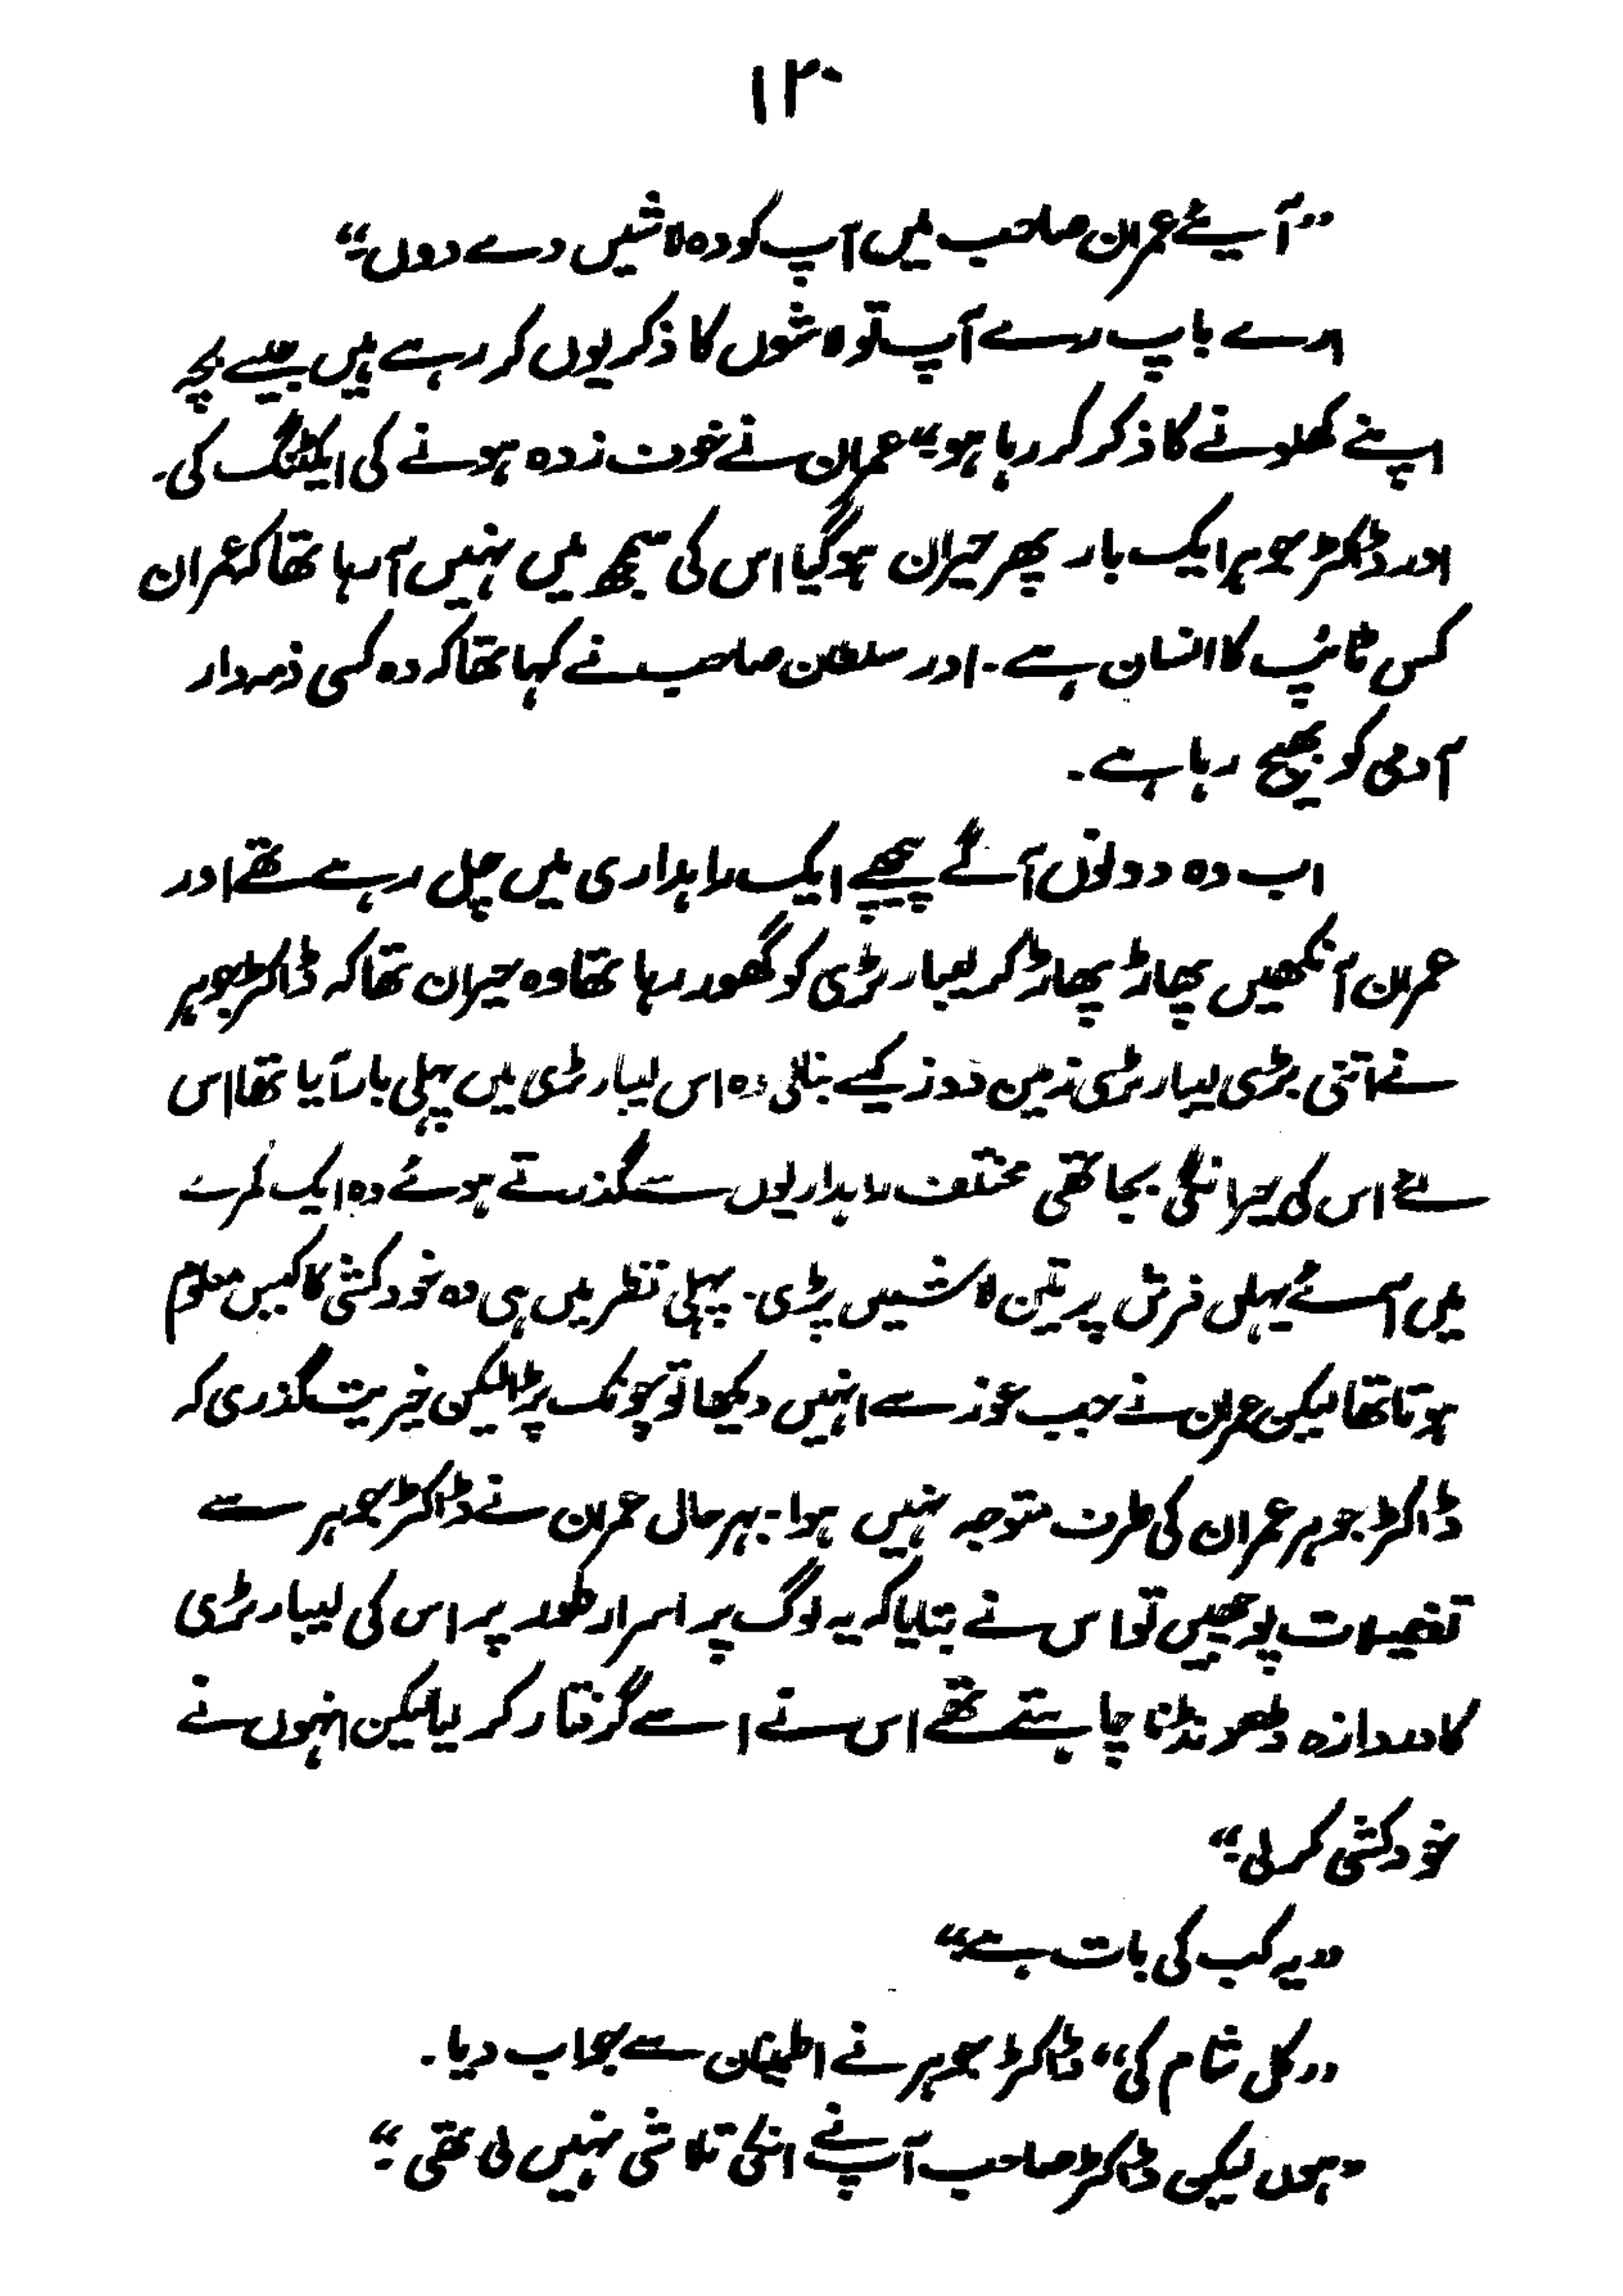 ۱۲۰
”آیئے عمران صاحب میں آپ کو وہ لاشیں دے دوں۔“
ارے باپ رے آپ تو لاشوں کا ذکر یوں کر رہے ہیں جیسے بچہ
اپنے کھلونے کا ذکر کر رہا ہو۔“ عمران نے خوف زدہ ہونے کی ایکٹنگ کی۔
اور ڈاکٹر جوہر ایک بار پھر حیران ہوگیا اس کی سمجھ میں نہیں آرہا تھا کہ عمران
کس ٹائپ کا انسان ہے۔ اور سلطان صاحب نے کہا تھا کہ وہ کسی ذمہ دار
آدمی کو بھیج رہا ہے۔
اب وہ دونوں آگے پیچھے ایک راہداری میں چل رہے تھے اور
عمران آنکھیں پھاڑ پھاڑ کر لیبارٹری کو گھور رہا تھا وہ حیران تھا کہ ڈاکٹر جوہر
نے اتنی بڑی لیبارٹری زمین دوز کیسے بنالی وہ اس لیبارٹری میں پہلی بار آیا تھا اس
لئے اس کی حیرانگی بجا تھی مختلف راہداریوں سے گذرتے ہوئے وہ ایک کمرے
میں آئے یہاں فرش پر تین لاشیں پڑی۔ پہلی نظر میں ہی وہ خودکشی کا کیس معلوم
ہوتا تھا لیکن عمران نے جب غور سے انہیں دیکھا تو چونک پڑا لیکن خیریت گذری کہ
ڈاکٹر جوہر عمران کی طرف متوجہ نہیں ہوا۔ بہرحال عمران نے ڈاکٹر جوہر سے
تفصیلات پوچھیں تو اس نے بتلایا کہ یہ لوگ پر اسرار طور پر اس کی لیبارٹری
کا دروازہ ڈھونڈنا چاہتے تھے اس نے اسے گرفتار کر لیا لیکن انہوں نے
خودکشی کرلی۔“
”یہ کب کی بات ہے“
”کل شام کی“ ڈاکٹر جوہر نے اطمینان سے جواب دیا۔
”ہوں لیکن ڈاکٹر صاحب آپ نے انکی تلاشی نہیں لی تھی۔“